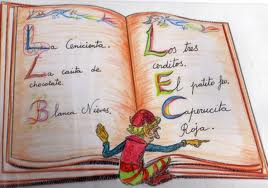 La Cenicienta.
La casita de
chocolate.
Blanca Nieves.
Los tres
cerditos.
El patito feo.
Caperucita
Roja.